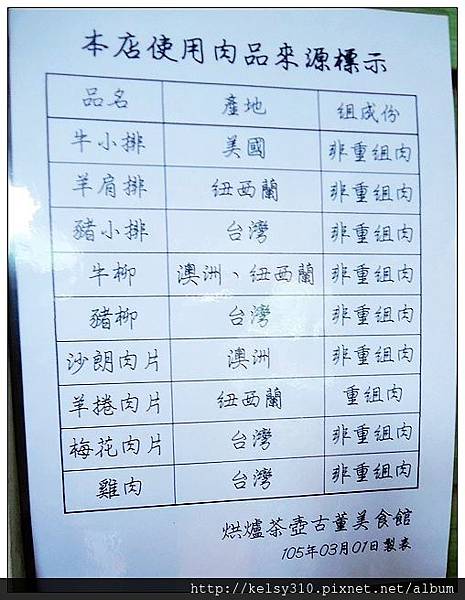 本店使用肉品來源標示
品名 產地 組成份
牛小排 美國 非重組肉
羊肩排 紐西蘭 非重組肉
豬小排 台灣 非重組肉
牛柳 澳洲、紐西蘭 非重組肉
豬柳 台灣 非重組肉
沙朗肉片 澳洲 非重組肉
羊捲肉片 紐西蘭 重組肉
梅花肉片 台灣 非重組肉
雞肉 台灣 非重組肉
烘爐茶壺古董美食館
105年03月01日製表
http://kelsy310.pixnet.net/album